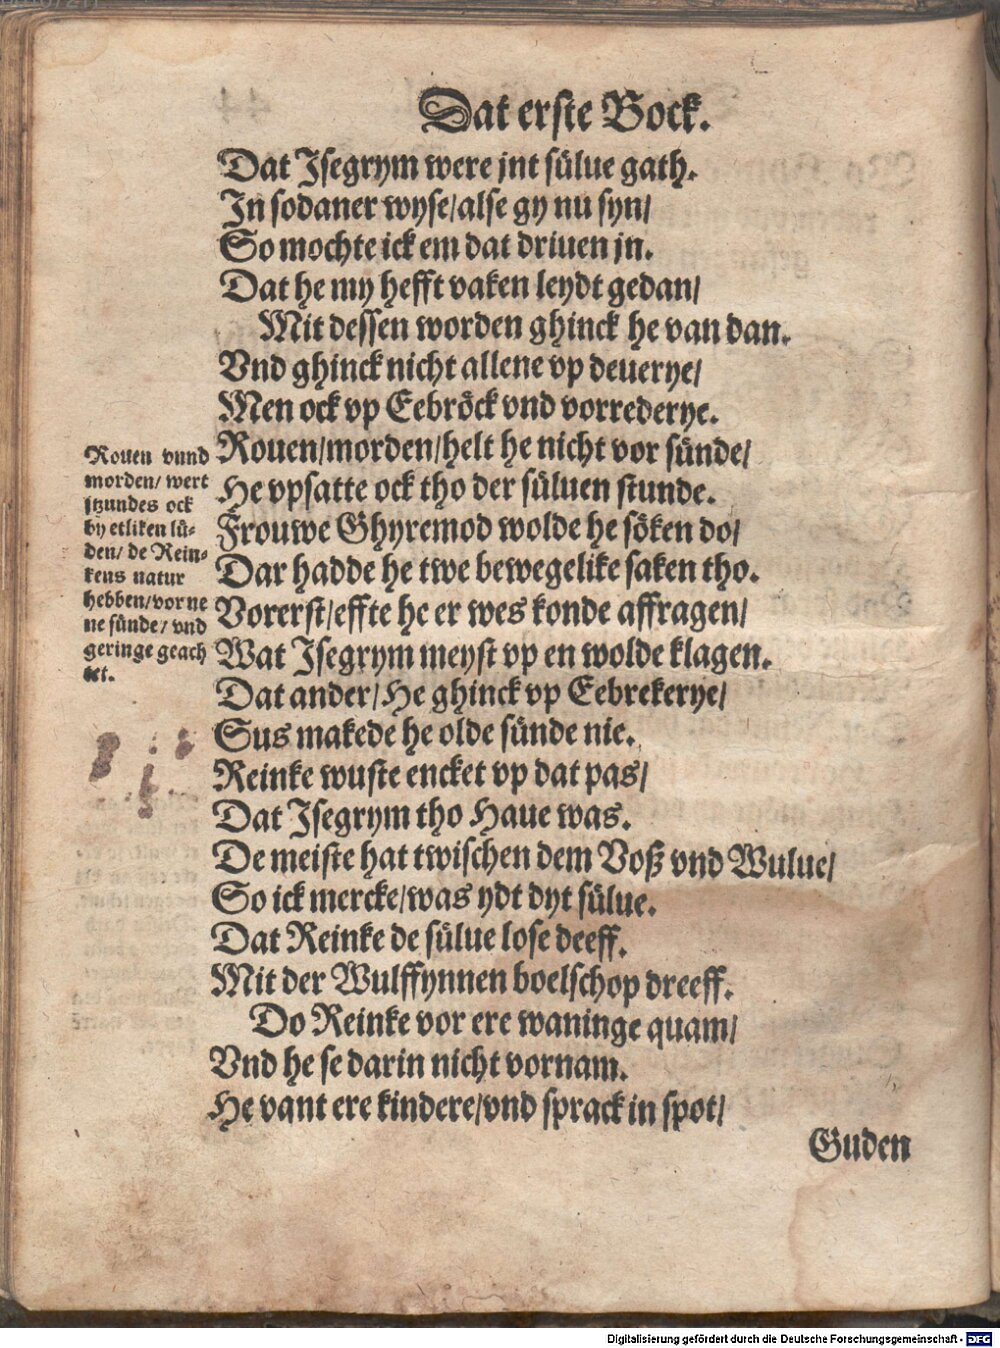 Dat erste Bock.
Dat Isegrym were jnt sülue gath.
In sodaner wyse/alse gy nu syn/
So mochte ick em dat driuen jn.
Dat he my hefft vaken leydt gedan/
Mit dessen worden ghinck he van dan.
Vnd ghinck nicht allene vp deuerye/
Men ock vp Eebröck vnd vorrederye.
Rouen/morden/helt he nicht vor sünde/
He vpsatte ock tho der süluen stunde.
Frouwe Ghyremod wolde he söken do/
Dar hadde he twe bewegelike saken tho.
Vorerst/effte he er wes konde affragen/
Wat Isegrym meyst vp en wolde klagen.
Dat ander/He ghinck vp Eebrekerye/
Sus makede he olde sünde nie.
Reinke wuste encket vp dat pas/
Dat Isegrym tho Haue was.
De meiste hat twischen dem Voß vnd Wulue/
So ick mercke/was ydt dyt sülue.
Dat Reinke de sülue lose deeff.
Mit der Wulffynnen boelschop dreeff.
Do Reinke vor ere waninge quam/
Vnd he se darin nicht vornam.
He vant ere kindere/vnd sprack in spot/
Guden
Rouen vnnd
morden/ wert
itzundes ock
by etliken lü-
den/ de Rein-
kens natur
hebben/vor ne
ne sünde/ vnd
geringe geach
tet.
Digitalisierung gefördert durch die Deutsche Forschungsgemeinschaft - DFG